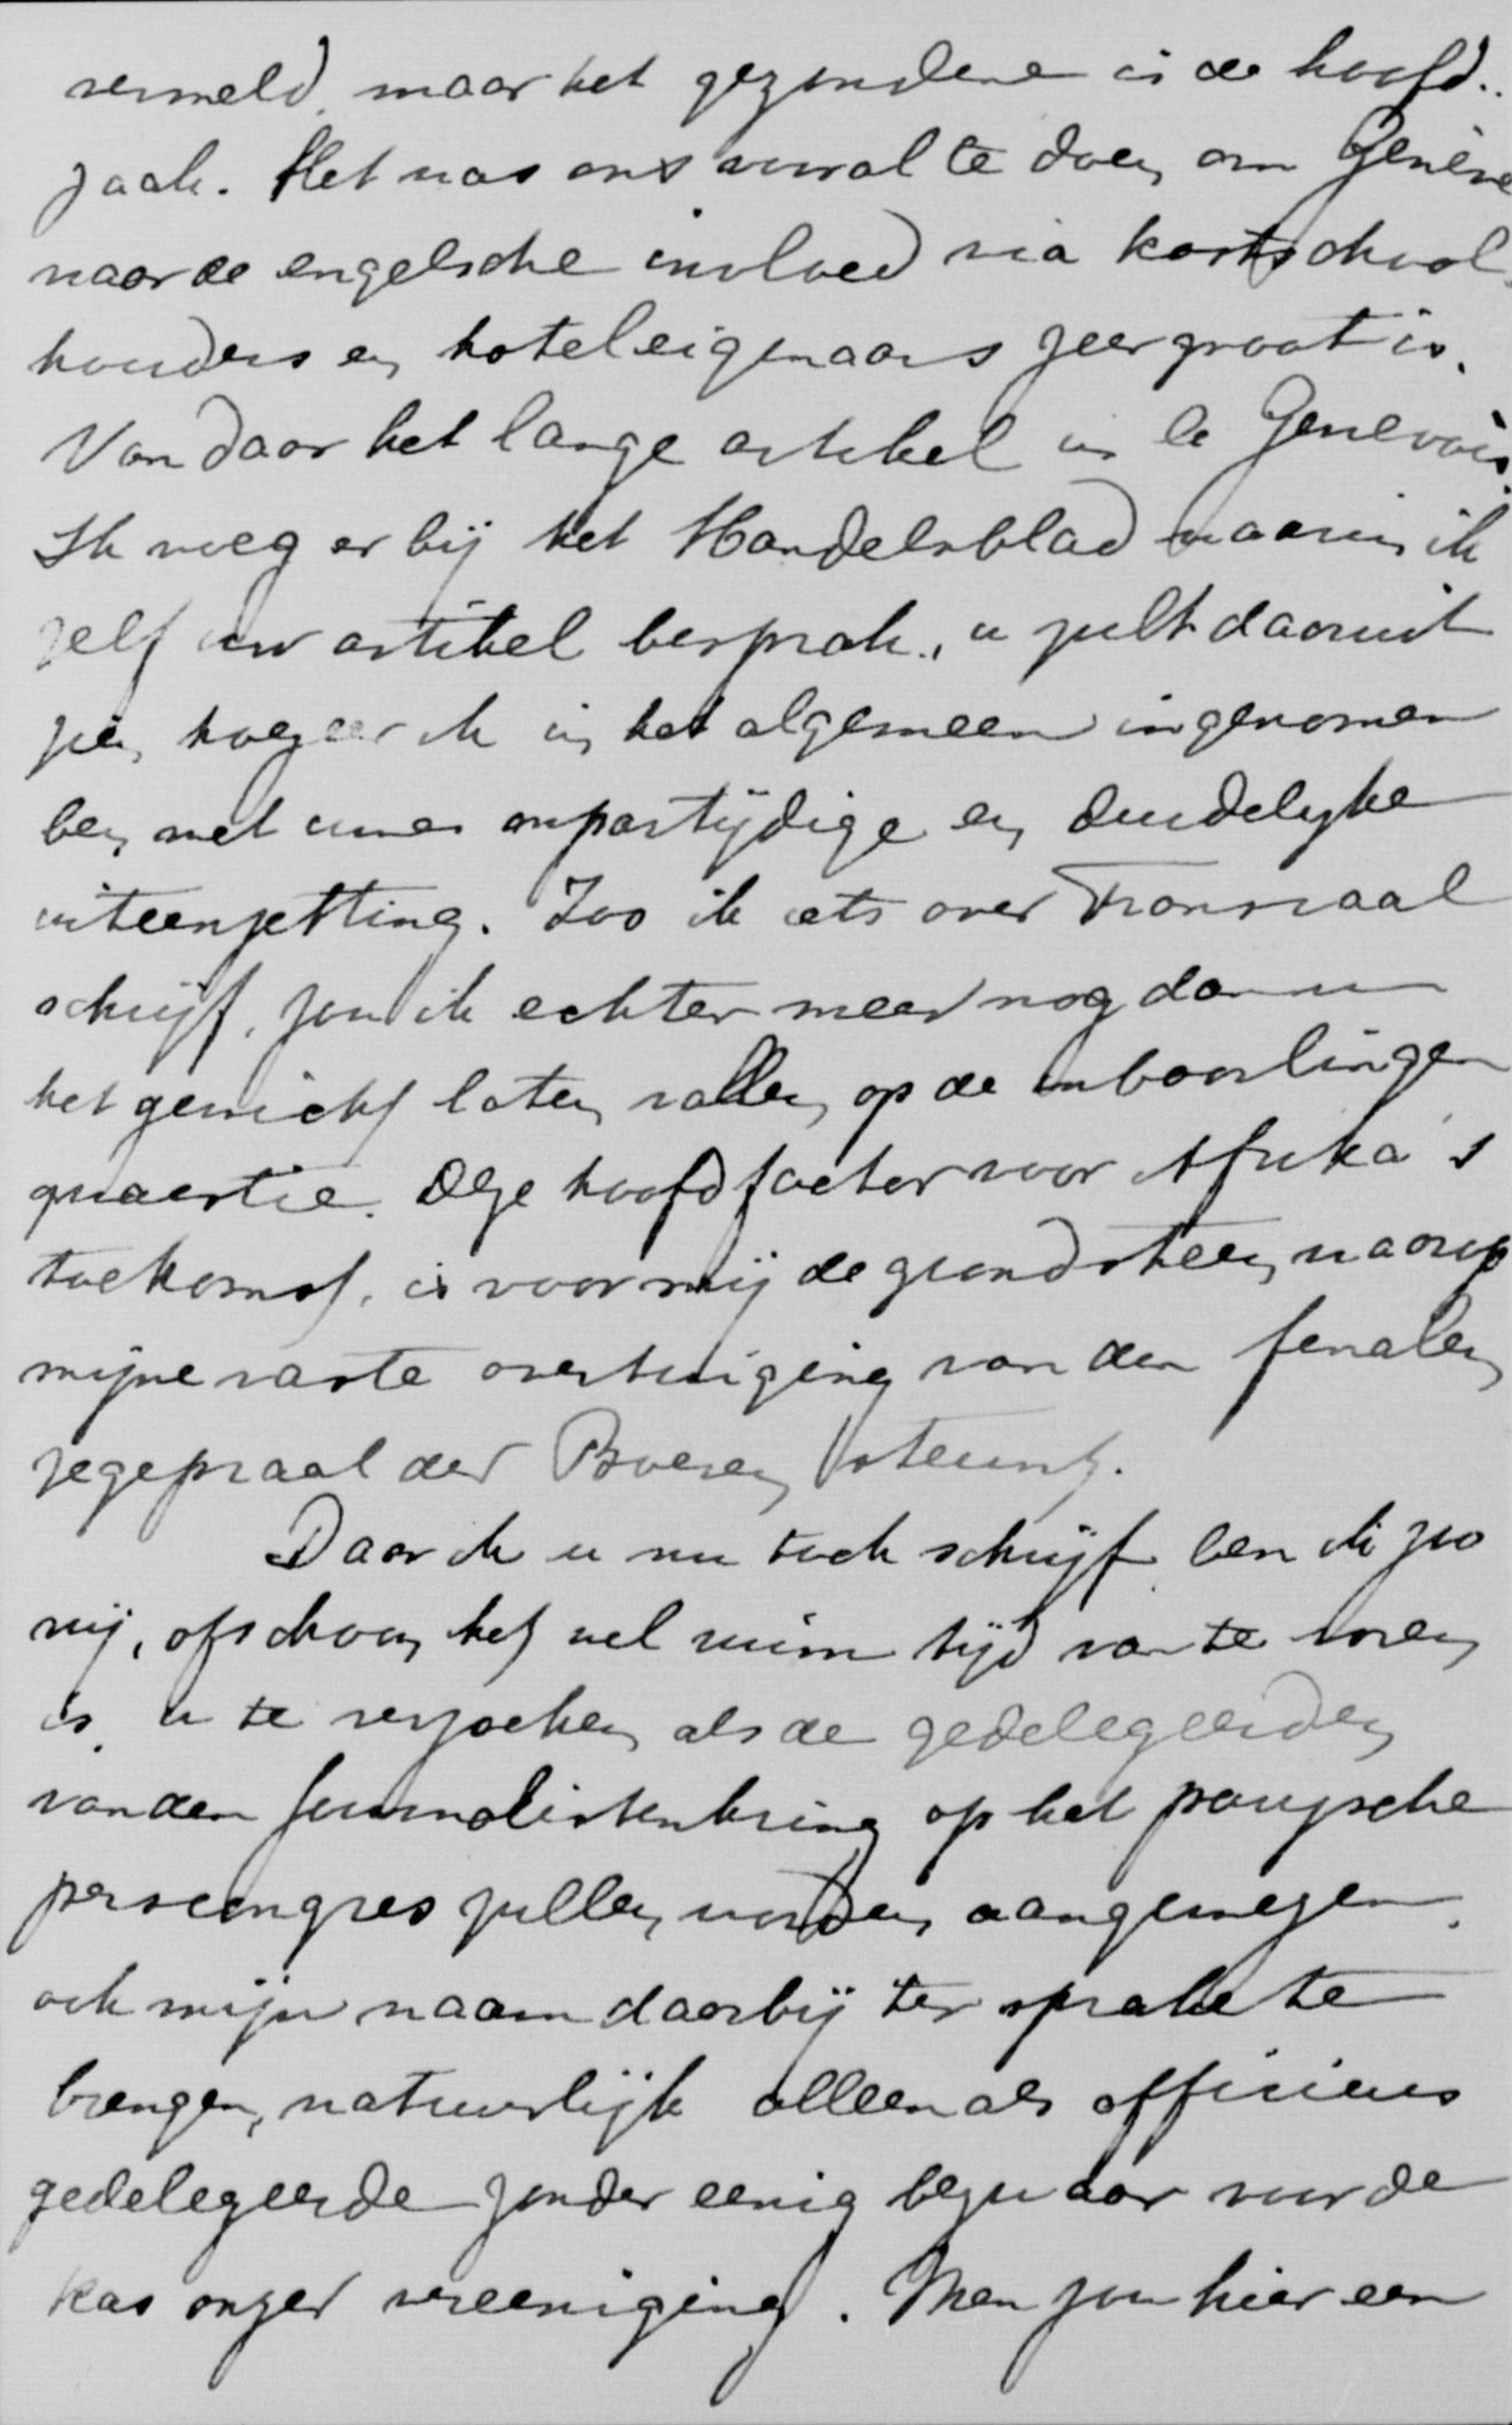 vermeld, maar het gezondene is de hoofd-
zaak. Het was ons vooral te doen om Genève
waar de engelsche invloed via kostschool
houders en hoteleigenaars zeer groot is.
Van daar het lange artikel in le Genevois.
Ik voeg er bij het Handelsblad waarin ik
zelf uw artikel besprak, u zult daaruit
zien, hoezeer ik in het algemeen ingenomen
ben met uwe onpartijdige en duidelyke
uiteenzetting. Zoo ik iets over Transvaal
schrijf, zou ik echter meer nog dan u
het gewicht laten vallen op de inboorlingen
quaestie. Deze hoofdfactor voor Afrika's
toekomst, is voor mij de grondsteen, waarop
mijne vaste overtuiging van den finalen
zegepraal der Boeren steunt.
Daar ik u nu toch schrijf ben ik zoo
vrij, ofschoon het wel ruim tijd van te voren
is, u te verzoeken, als de gedelegeerden
van den Journalistenkring op het parijsche
perscongres zullen worden aangewezen,
ook mijn naam daarbij ter sprake te
brengen, natuurlijk alleen als officieus
gedelegeerde zonder eenig bezwaar voor de
kas onzer vereeniging. Men zou hier een